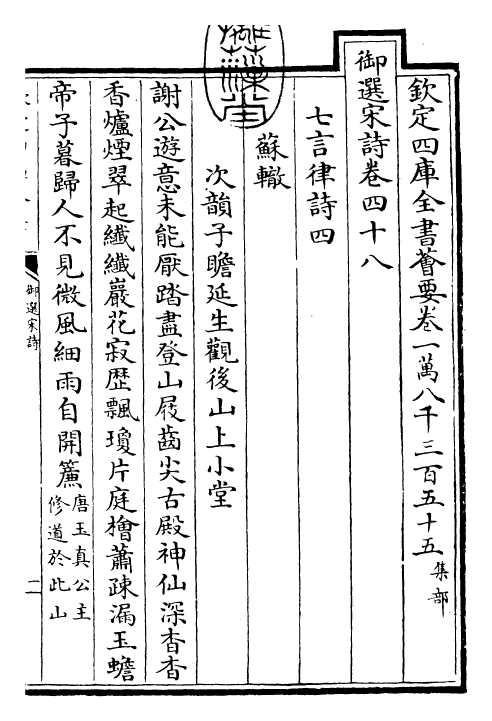 欽定四庫全書薈要卷一萬八千三百五十五集部
御選宋詩卷四十八
七言律詩四
蘇轍
次韻子瞻延生觀後山上小堂
謝公遊意未能厭踏盡登山屐齒尖古殿神仙深杳杳
香爐煙翠起纖纖巖花寂歴飄瓊片庭檜蕭疎漏玉蟾
帝子暮歸人不見微風細雨自開簾唐玉真公主
修道於此山
御選宋詩